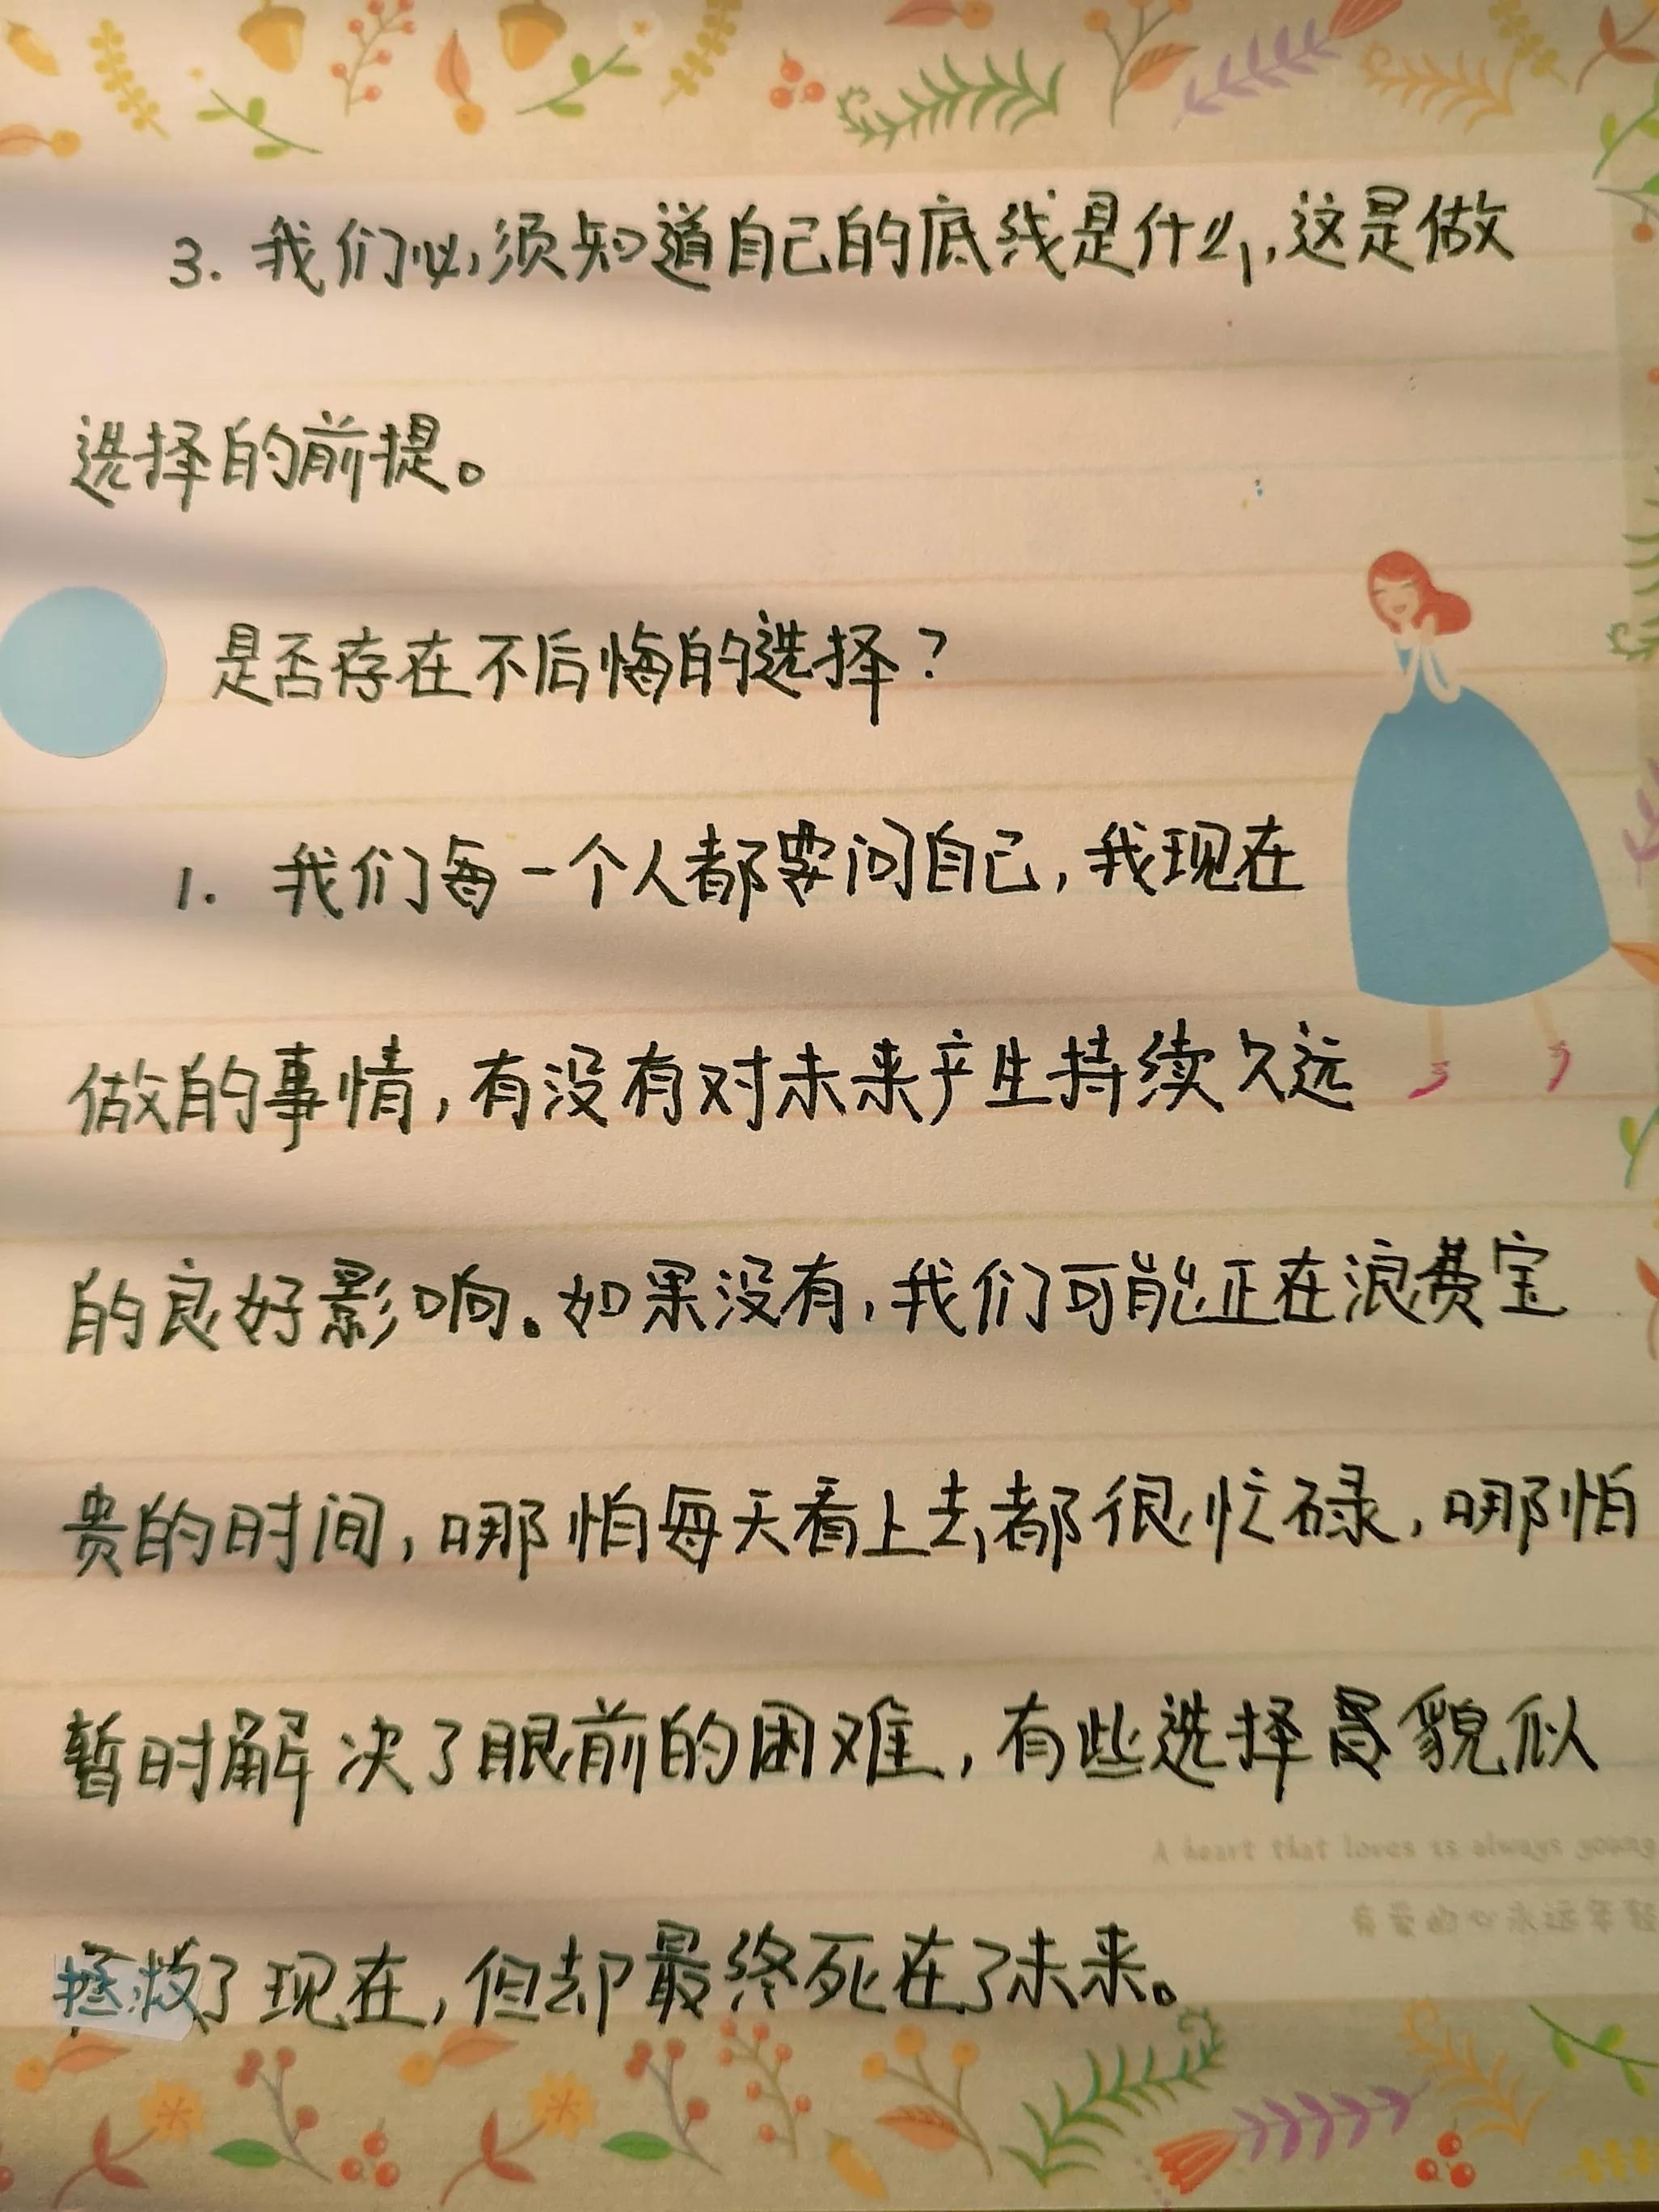 3. 我们必须知道自己的底线是什么,这是做
选择的前提。
是否存在不后悔的选择?
1. 我们每一个人都要问自己,我现在
做的事情,有没有对未来产生持续久远
的良好影响。如果没有,我们可能正在浪费宝
贵的时间,哪怕每天看上去都很忙碌,哪怕
暂时解决了眼前的困难,有些选择貌似
A heart that loves is always young
有爱的心永远年轻
拯救了现在,但却最终死在了未来。